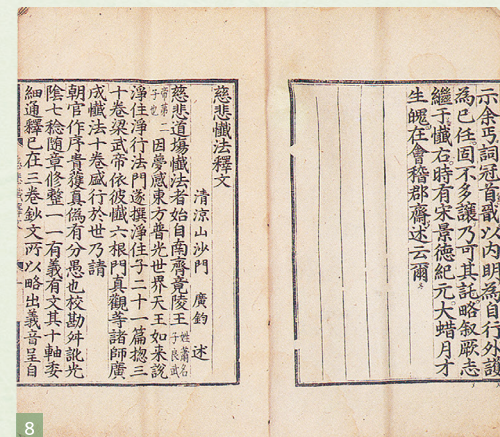 示余丐詞冠首敢以内明為自行外護
為已任固不多讓乃可其託略叙厥志
繼于懺右時有宋景徳紀元大蜡月才
生魄在會稽郡齋述云爾
慈悲懺法釋文
清凉山沙門 廣鈞 述
慈悲道場懺法者始自南齊竟陵王姓蕭名子良武
帝第二子也因夢感東方普光世界天王如来說
淨住淨行法門遂撰淨住子二十一篇揔三
十卷梁武帝依彼懺六根門真觀等諸師廣
成懺法十卷盛行於世乃請
朝官作序貴獲真偽有分愚也校勘舛訛光
陰七稔随章修整一一有義有文其十軸委
細通釋已在三卷鈔文所以略出義音呈自
8